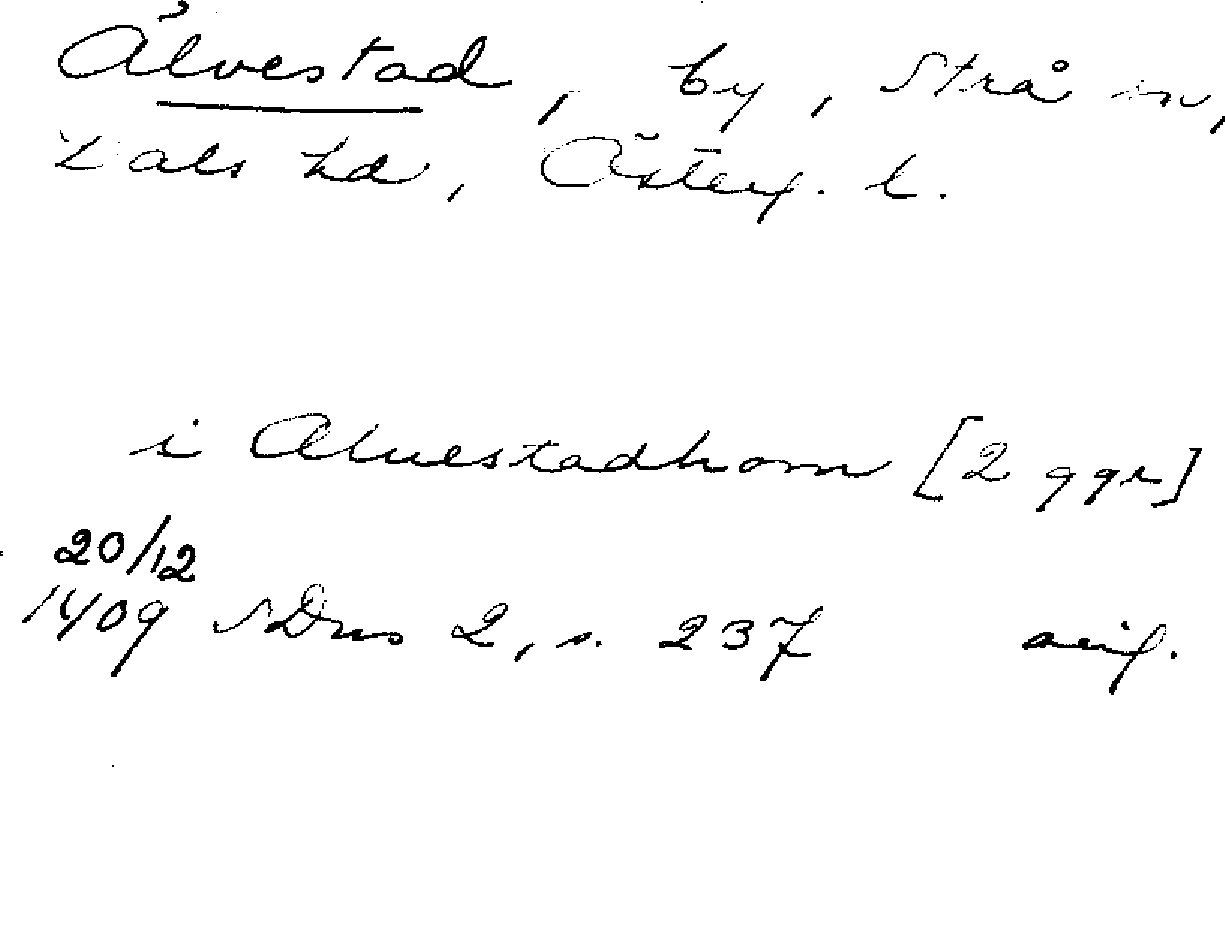 Älvestad, by, Strå sn,
Dals hd, Österg. l.
i Aluestadhom [2 ggr]
20/12
1409 SDns 2, s. 237 avif.